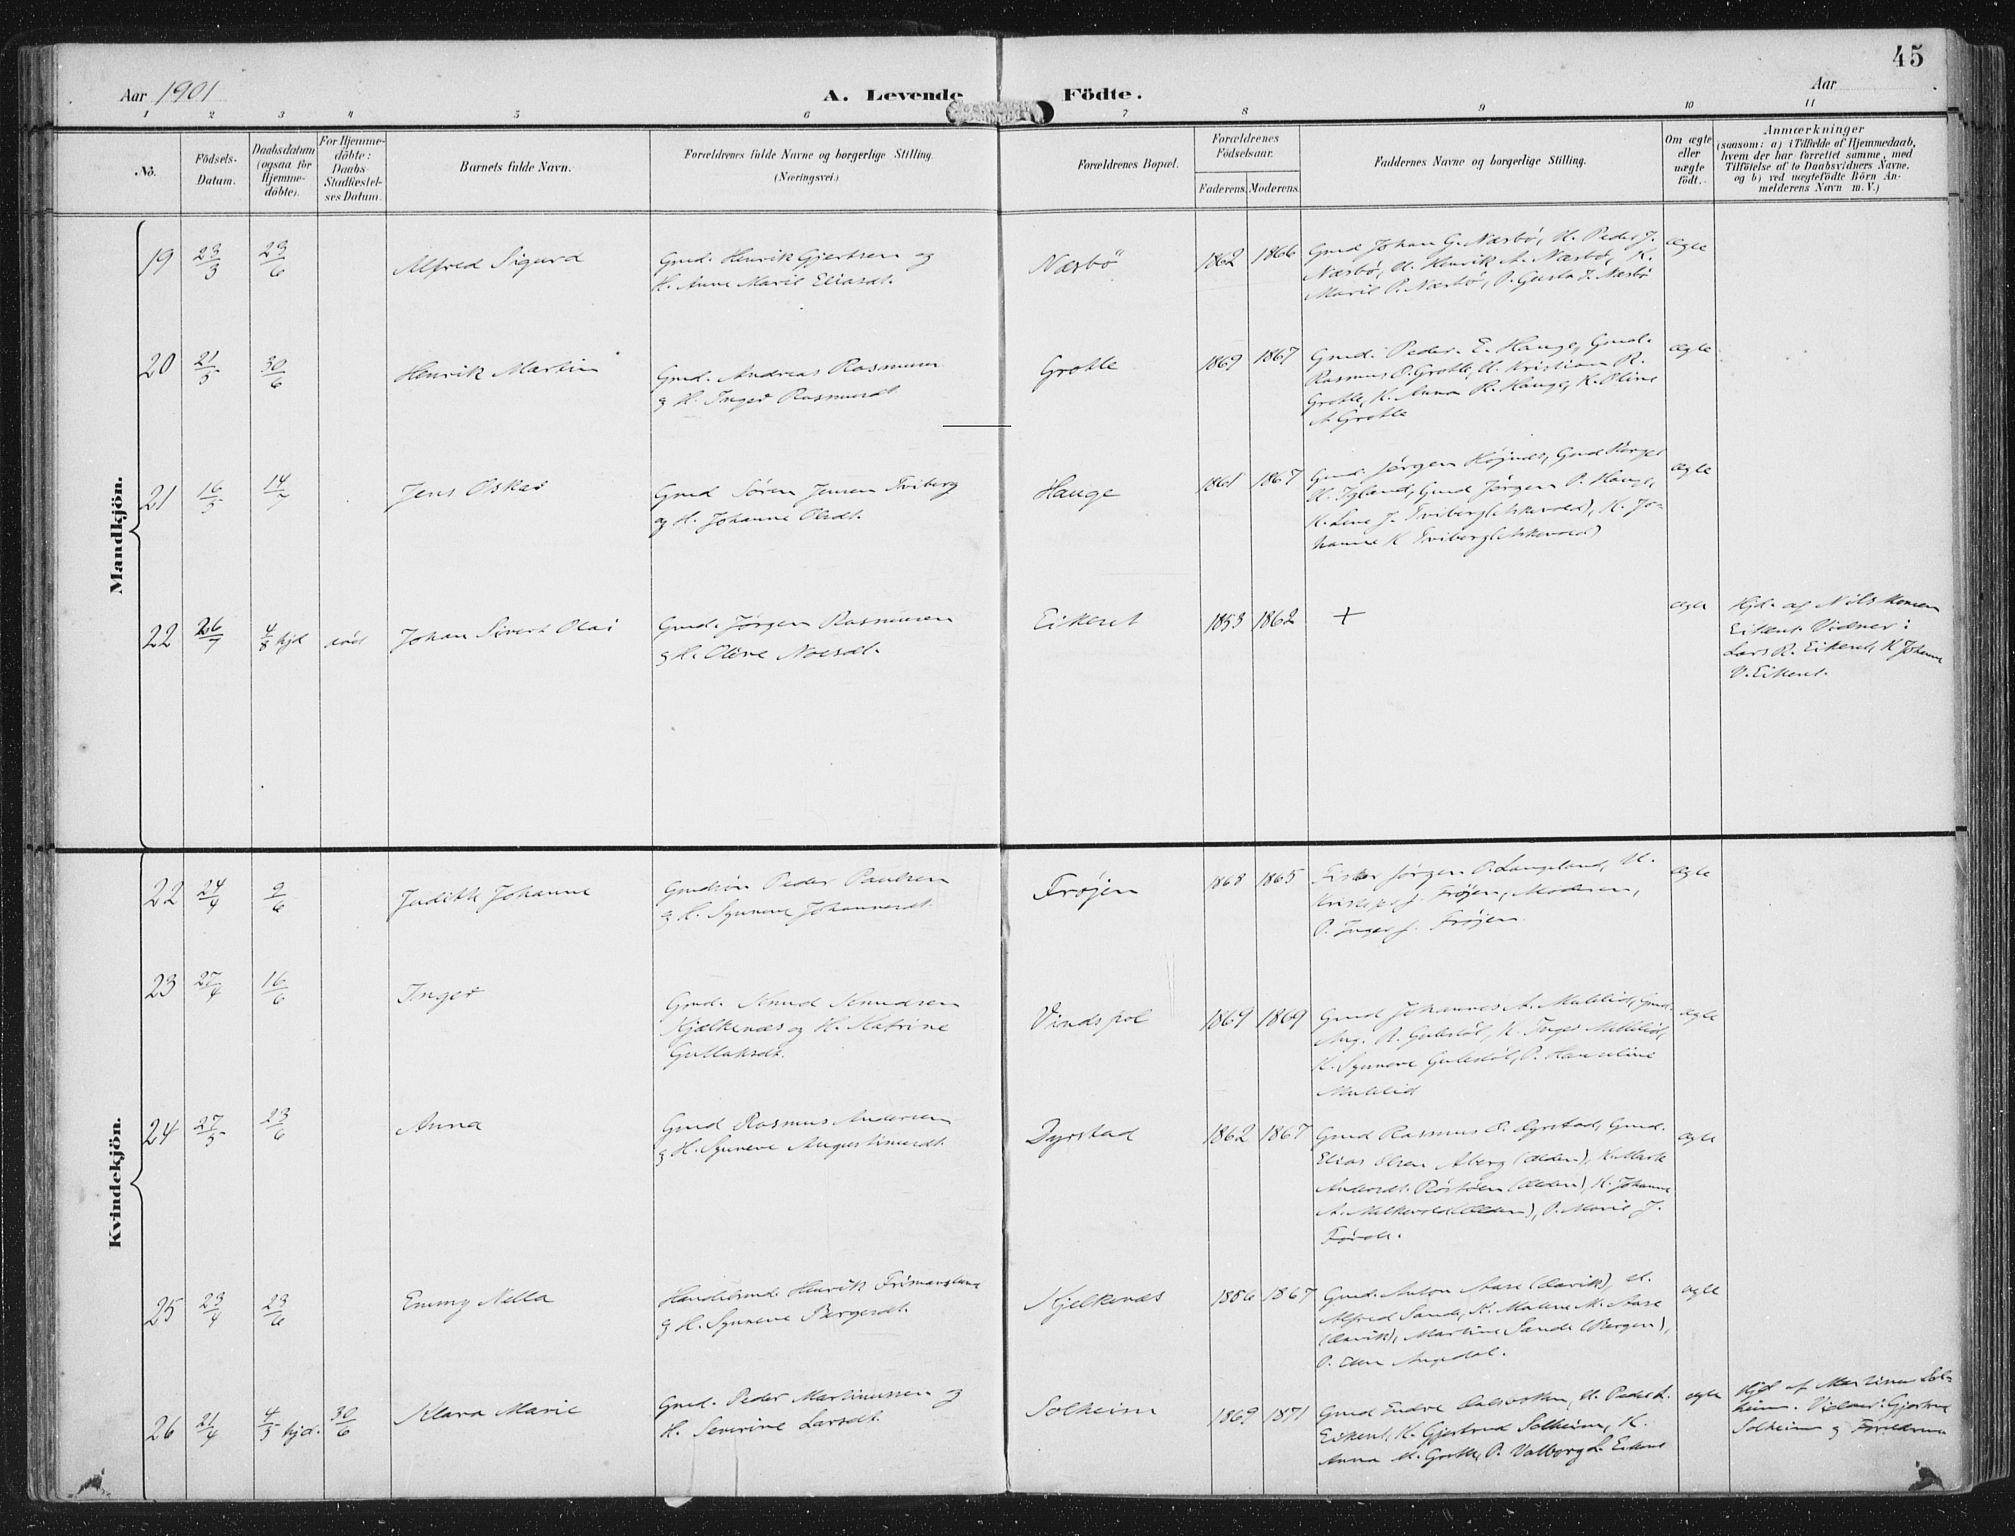 45
Aar 1901
A. Levende Födte.
Aar
1 2 3 4 5 6 7 8 9 10 11
No.
Födsels-
Datum.
Daabsdatum
(ogsaa for
Hjemme-
döbte).
For Hjemme-
döbte:
Daabs-
Stadfæstel-
ses Datum.
Barnets fulde Navn.
Forældrenes fulde Navne og borgerlige Stilling.
(Næringsvei.)
Forældrenes Bopæl.
Forældrenes
Födselsaar.
Faderens. Moderens.
Faddernes Navne og borgerlige Stilling.
Om ægte
eller
uægte
födt.
Anmærkninger
(saasom: a) i Tilfælde af Hjemmedaab,
hvem der har forrettet samme, med
Tilföielse af to Daabsvidners Navne,
og b) ved uægtefödte Börn An-
melderens Navn m. V.)
Mandkjön.
19 23/3 23/6 Alfred Sigurd
Gmd. Henrik Gjertsen og
H. Anne Marie Eliasdt.
Næsbö 1862 1866
Gmd Johan G. Næsbö, U. Peder J.
Næsbö, U. Henrik A. Næsbö, K.
Marie P. Næsbö, P. Gusta J. Næsbö
ægte
20 21/5 30/6 Henrik Martin
Gmd. Andreas Rasmusen
& H. Inger Rasmusdt.
Grotle 1869 1867
Gmd. Peder E. Hauge, Gmd.
Rasmus P. Grotle, U. Kristian R.
Grotle, K. Anna R. Hauge, K. Oline
A. Grotle
ægte
21 16/5 14/7 Jens Oskar
Gmd Sören Jensen Tviberg
og H. Johanne Olsdt.
Hauge 1861 1867
Gmd. Jörgen Höjnæs, Gmd Börge
H. Igland, Gmd Jörgen P. Hauge,
K. Lene J. Tviberg (Askevold), K. Jo-
hanne K. Tviberg (Askevold)
ægte
22 26/7 4/8 hjd död Johan Sivert Olai
Gmd. Jörgen Rasmusen
& H. Oline Noesdt.
Eikeset 1853 1862 + ægte
Hjd. af Nils
Eikeset. Vidner:
Lars R. Eikeset, K Johanne
Eikeset.
Kvindekjön.
22 24/4 2/6 Judith Johanne
Peder Paulsen
& H. Synneve Johannesdt.
Fröjen 1868 1865
Fisker Jörgen P. Langeland, U.
J. Fröjen, Moderen,
P. Inger J. Fröjen.
ægte
23 27/4 16/6 Inger
Gmd. Knud Knudsen
Kjælkenæs og H. Katrine
Gullaksdt.
Vindspol 1869 1869
Gmd Johannes A. Myklid, Gmd
K. Inger
K. Synneve P. Hanseline
ægte
24 27/5 23/6 Anna
Gmd Rasmus Andersen
& H. Synneve Augustinusdt.
Dyrstad 1862 1867
Gmd Rasmus E. Dyrstad, Gmd.
Elias Olsen Aberg (Olden), K. Marte
Andersdt. (Olden), K. Johanne
A. Melkevold (Olden), P. Marie J.
Förde.
ægte
25 23/4 23/6 Emmy Nella
Handelsmd. Henrik Frimannslund
& H. Synneve Børgesdt.
Kjelkenæs 1856 1867
Gmd. Anton Aase (Davik), U.
Alfred Sande, K. Malene M. Aase
(Davik), Martine Sande (Bergen),
P. Ellen
ægte
26 21/4 4/5 hjd. 30/6 Klara Marie
Gmd. Peder Martinussen og
H. Severine Larsdt.
Solheim 1869 1871
Gmd Endre U. Peder L.
Eikeset, K. Gjertrud Solheim, K.
Anna M. Grotle, P. Valborg L. Eikeset
ægte
Hjd af Martinus Sol-
heim. Vidner: Gjertrud
Solheim & Forældrene